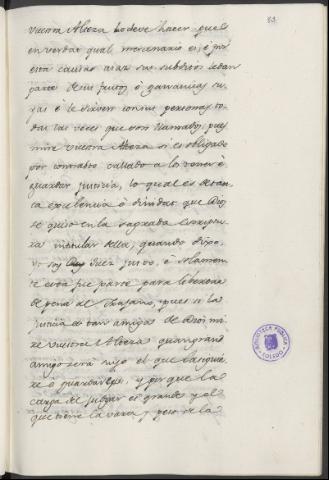 83
vuestra Alteza lo deve hacer, que
en verdad qual mercenario es, è por
esta causa sus subditos le dan
parte de sus frutos, è ganancias su-
yas, è le sirven con sus personas to-
das las veces que son llamados, pues
mire vuestra Alteza si es obligado
por contrato callado a los tener è
guardar justicia, lo qual es de tan-
ta excelencia è dividat que Dios
se quiso en la sagrada Escriptu-
ra intitular della, quando dixo,
yo soy Juez justo, è solamen-
te esta fue parte para libertar
de pena al Trajano, pues si la
justicia es tan amiga de Dios mi-
re vuestra Alteza quan grand
amigo será suyo el que la sigui-
re è guardare, y porque la
carga del juzgar es grande, y el
que tiene la vara, y peso de la
BIBLIOTECA PUBLICA
TOLEDO